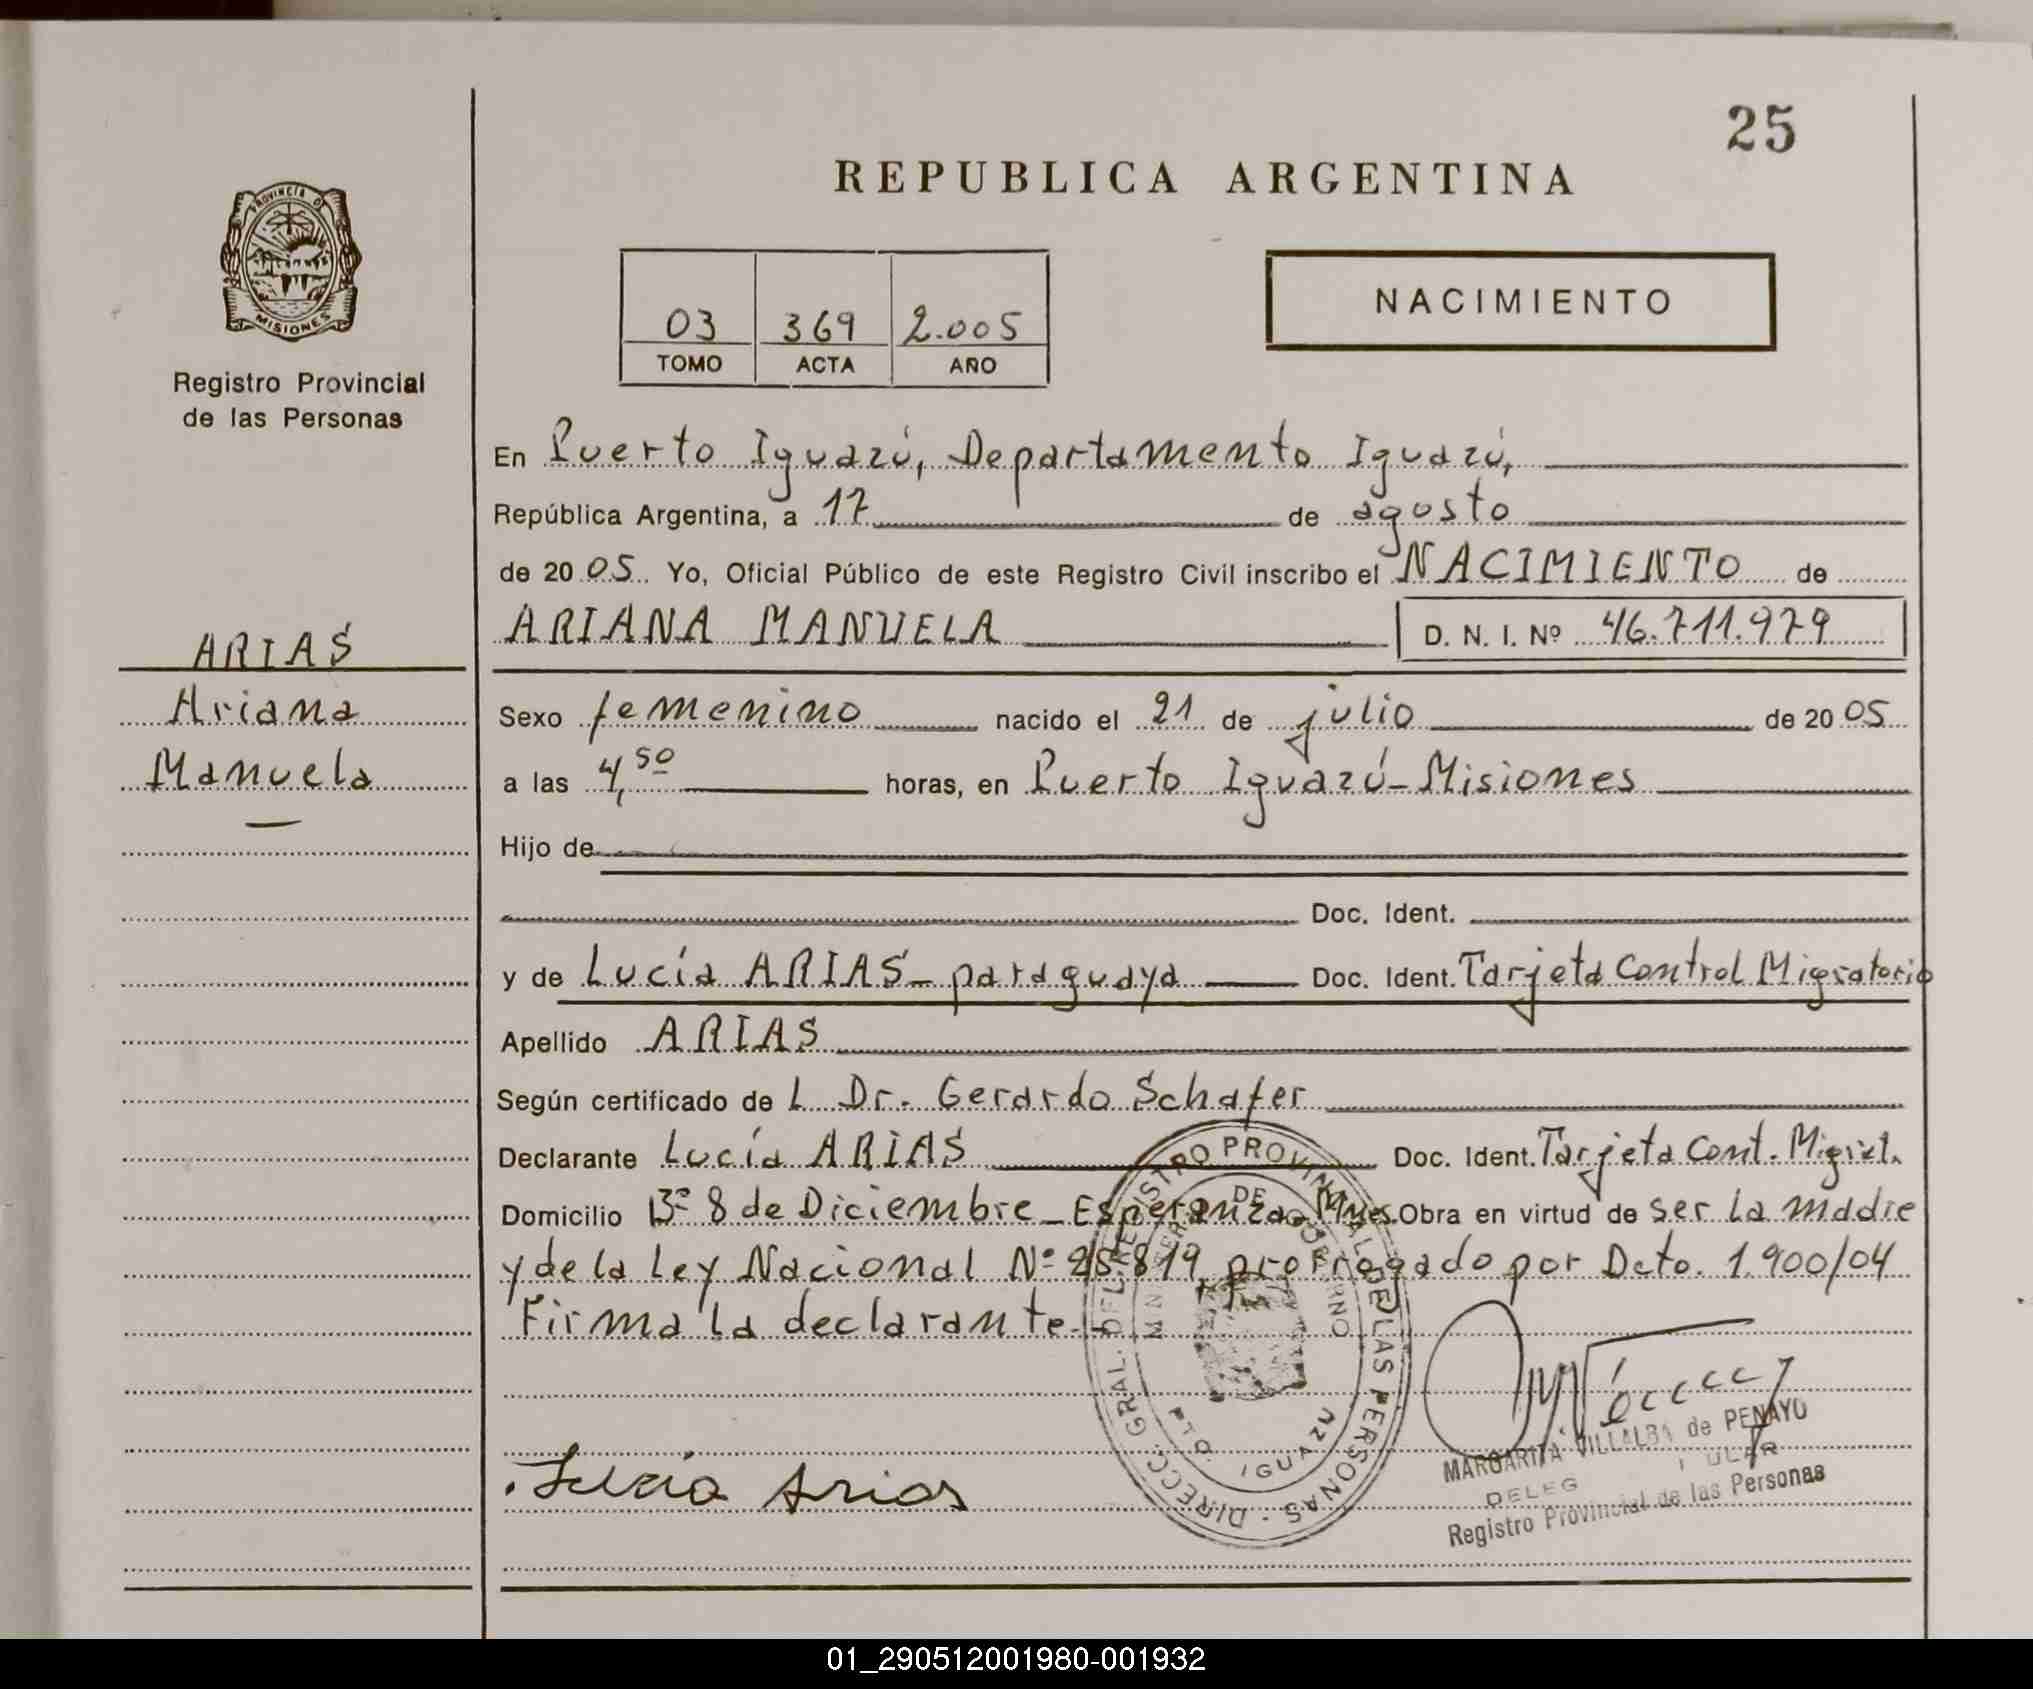 25
REPUBLICA ARGENTINA
PROVINCIA D
MISIONES
Registro Provincial
de las Personas
03 369 2.005
TOMO ACTA AÑO
NACIMIENTO
En Puerto Iguazú, Departamento Iguazú,
República Argentina, a 17 de agosto
de 20 05 Yo, Oficial Público de este Registro Civil inscribo el NACIMIENTO de
ARIANA MANUELA D. N. I. Nº 46.711.979
ARIAS
Ariana
Manuela
Sexo femenino nacido el 21 de julio de 20 05
a las 4,50 horas, en Puerto Iguazú - Misiones
Hijo de
Doc. Ident.
y de Lucía ARIAS - paraguaya Doc. Ident. Tarjeta Control Migratorio
Apellido ARIAS
Según certificado de L Dr. Gerardo Schafer
Declarante Lucía ARIAS Doc. Ident. Tarjeta Cont. Migrat.
Domicilio Bº 8 de Diciembre - Esperanza - Mnes. Obra en virtud de ser la madre
y de la Ley Nacional Nº 25.819, prorrogado por Dcto. 1.900/04
Firma la declarante.
DIRECC. GRAL. DEL REGISTRO PROVINCIAL DE LAS PERSONAS
MINISTERIO DE GOBIERNO
PTO. IGUAZU
Lucia Arias
MARGARITA VILLALBA de PENAYO
DELEG
Registro Provincial de las Personas
01_290512001980-001932